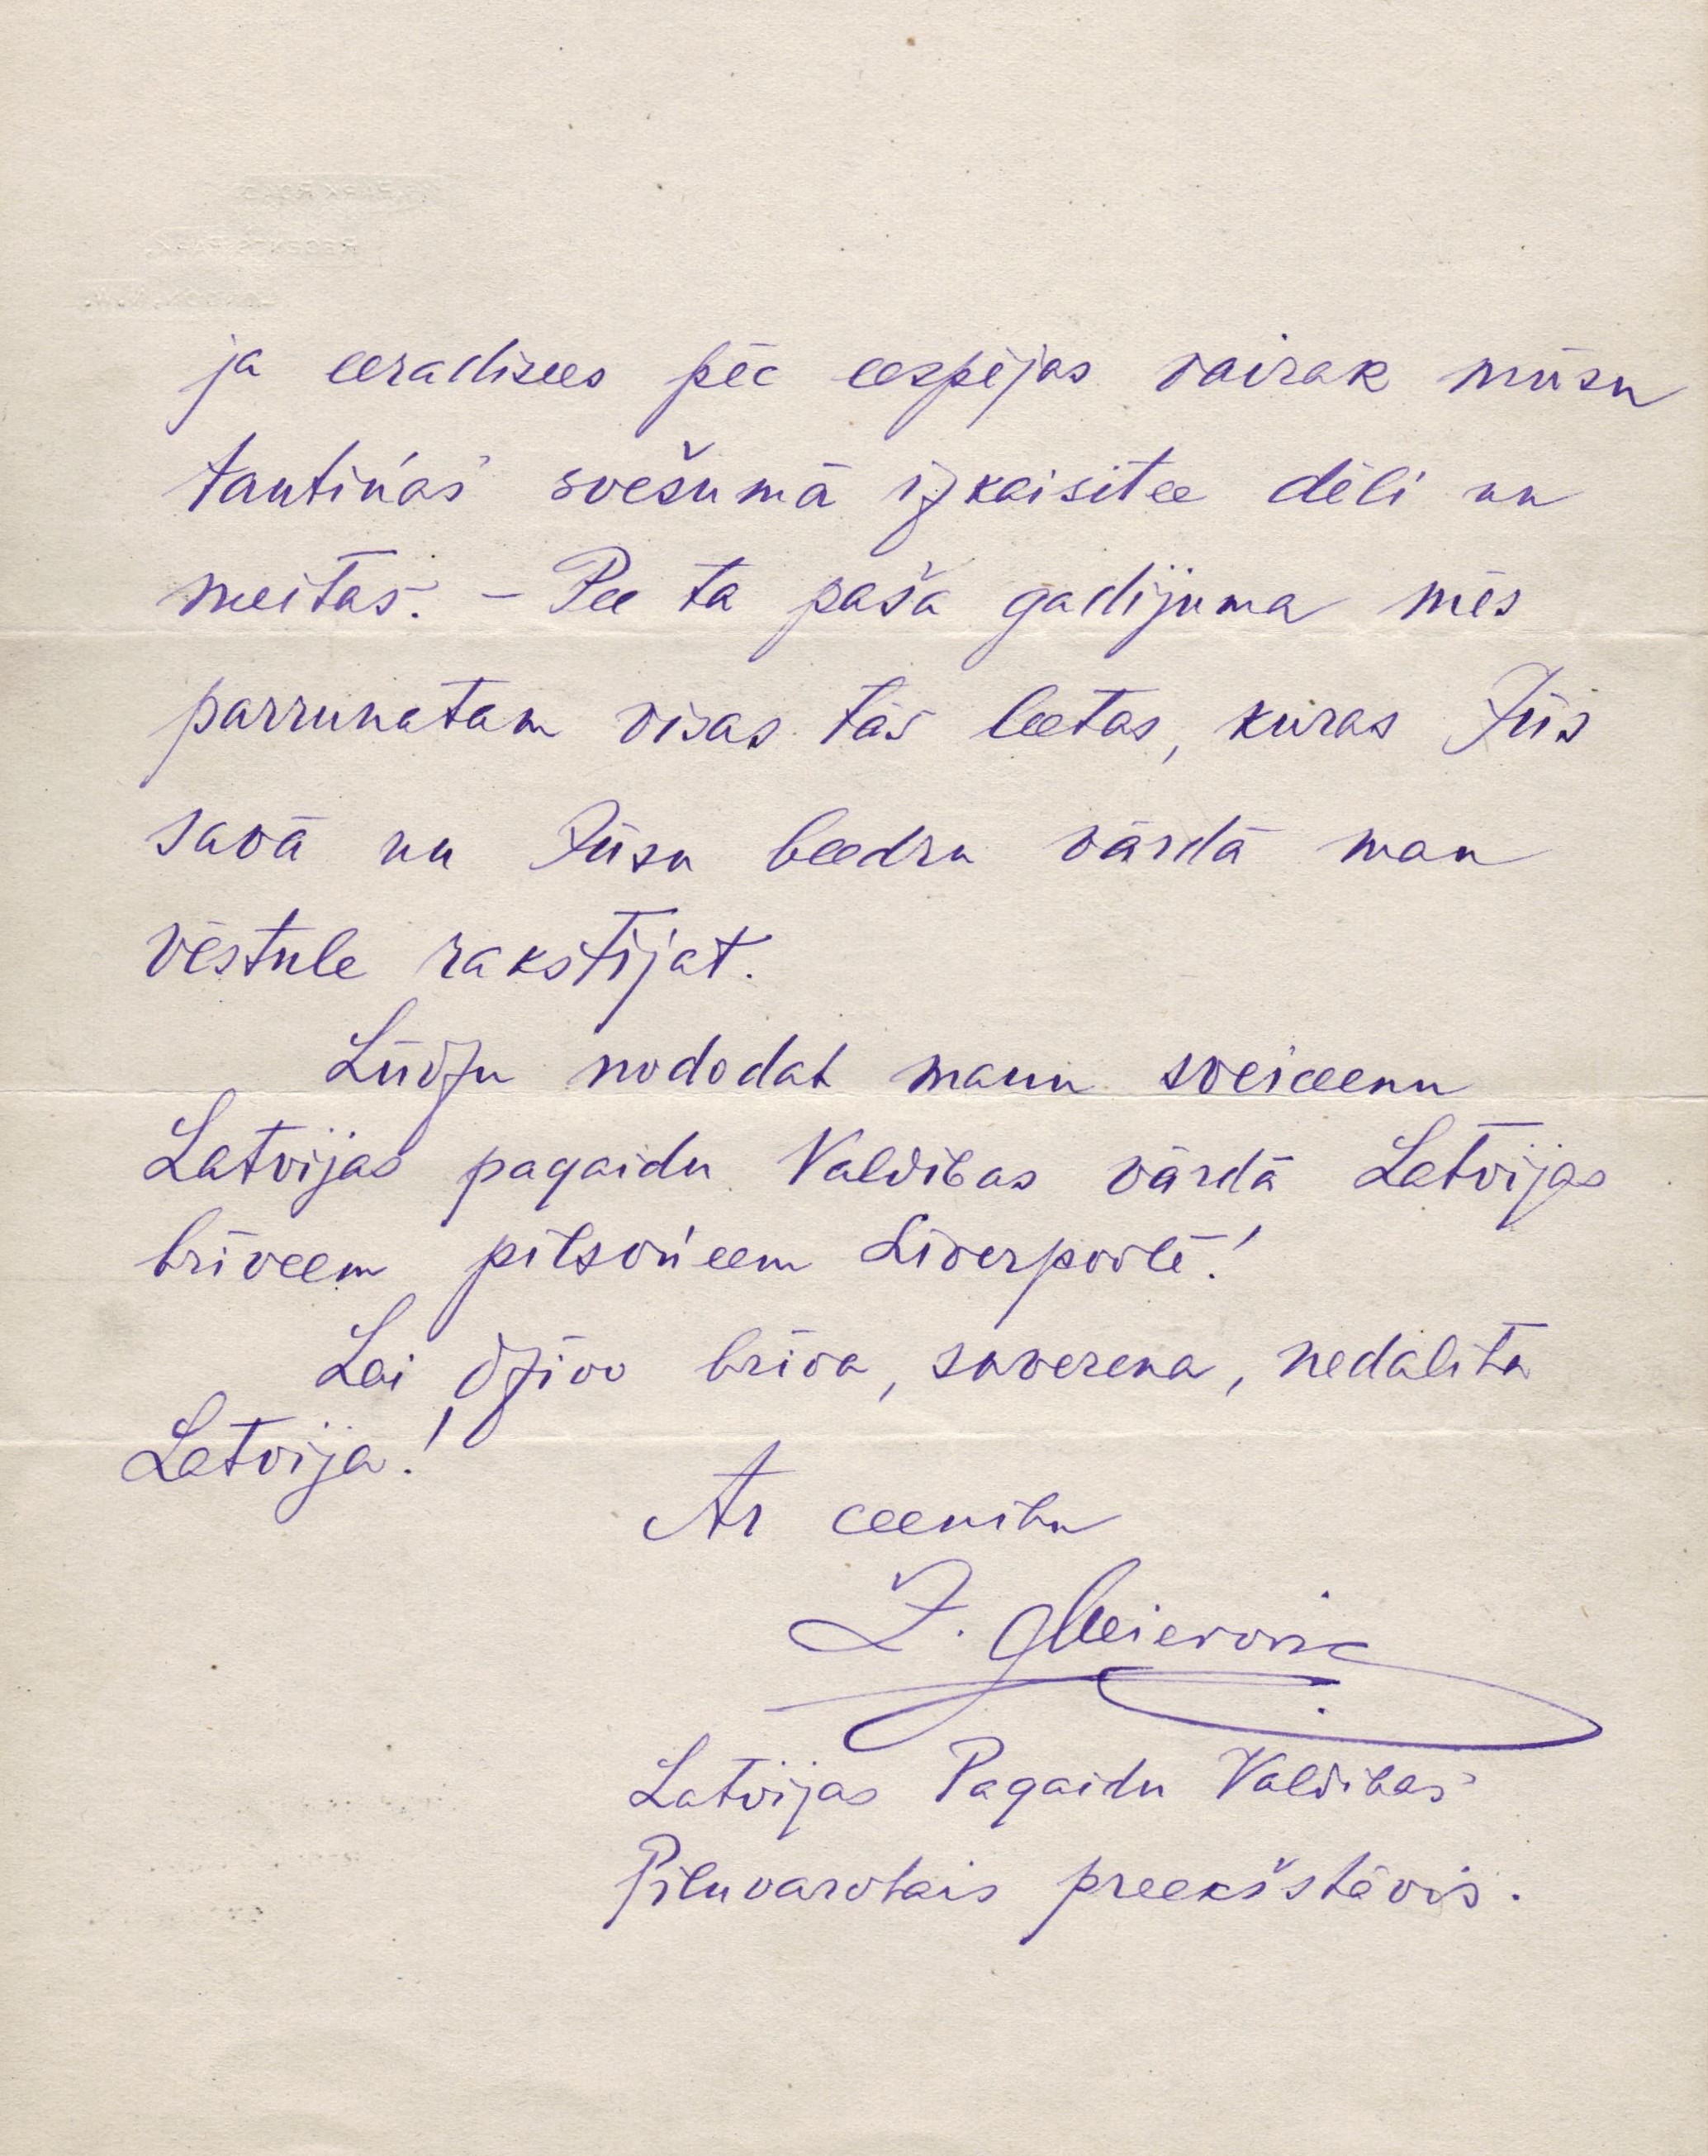 PARK ROAD
REGENTS PARK.
LONDON, N.W.
ja eeradisees pēc eespējas vairak mūsu
tautiņas svešumā izkaisitee dēli un
meitas. – Pee ta paša gadijuma mēs
parrunatam visas tās leetas, kuras Jūs
savā un Jūsu beedru vārdā man
vēstule rakstījat.
Lūdzu nododat manu sveiceenu
Latvijas pagaidu Valdibas vārdā Latvijas
brīveem pilsoņeem Liverpoolē!
Lai dzīvo brīva, suverena, nedalita
Latvija!
Ar ceenibu
Z. Meierovic
Latvijas Pagaidu Valdibas
Pilnvarotais preekšstāvis.